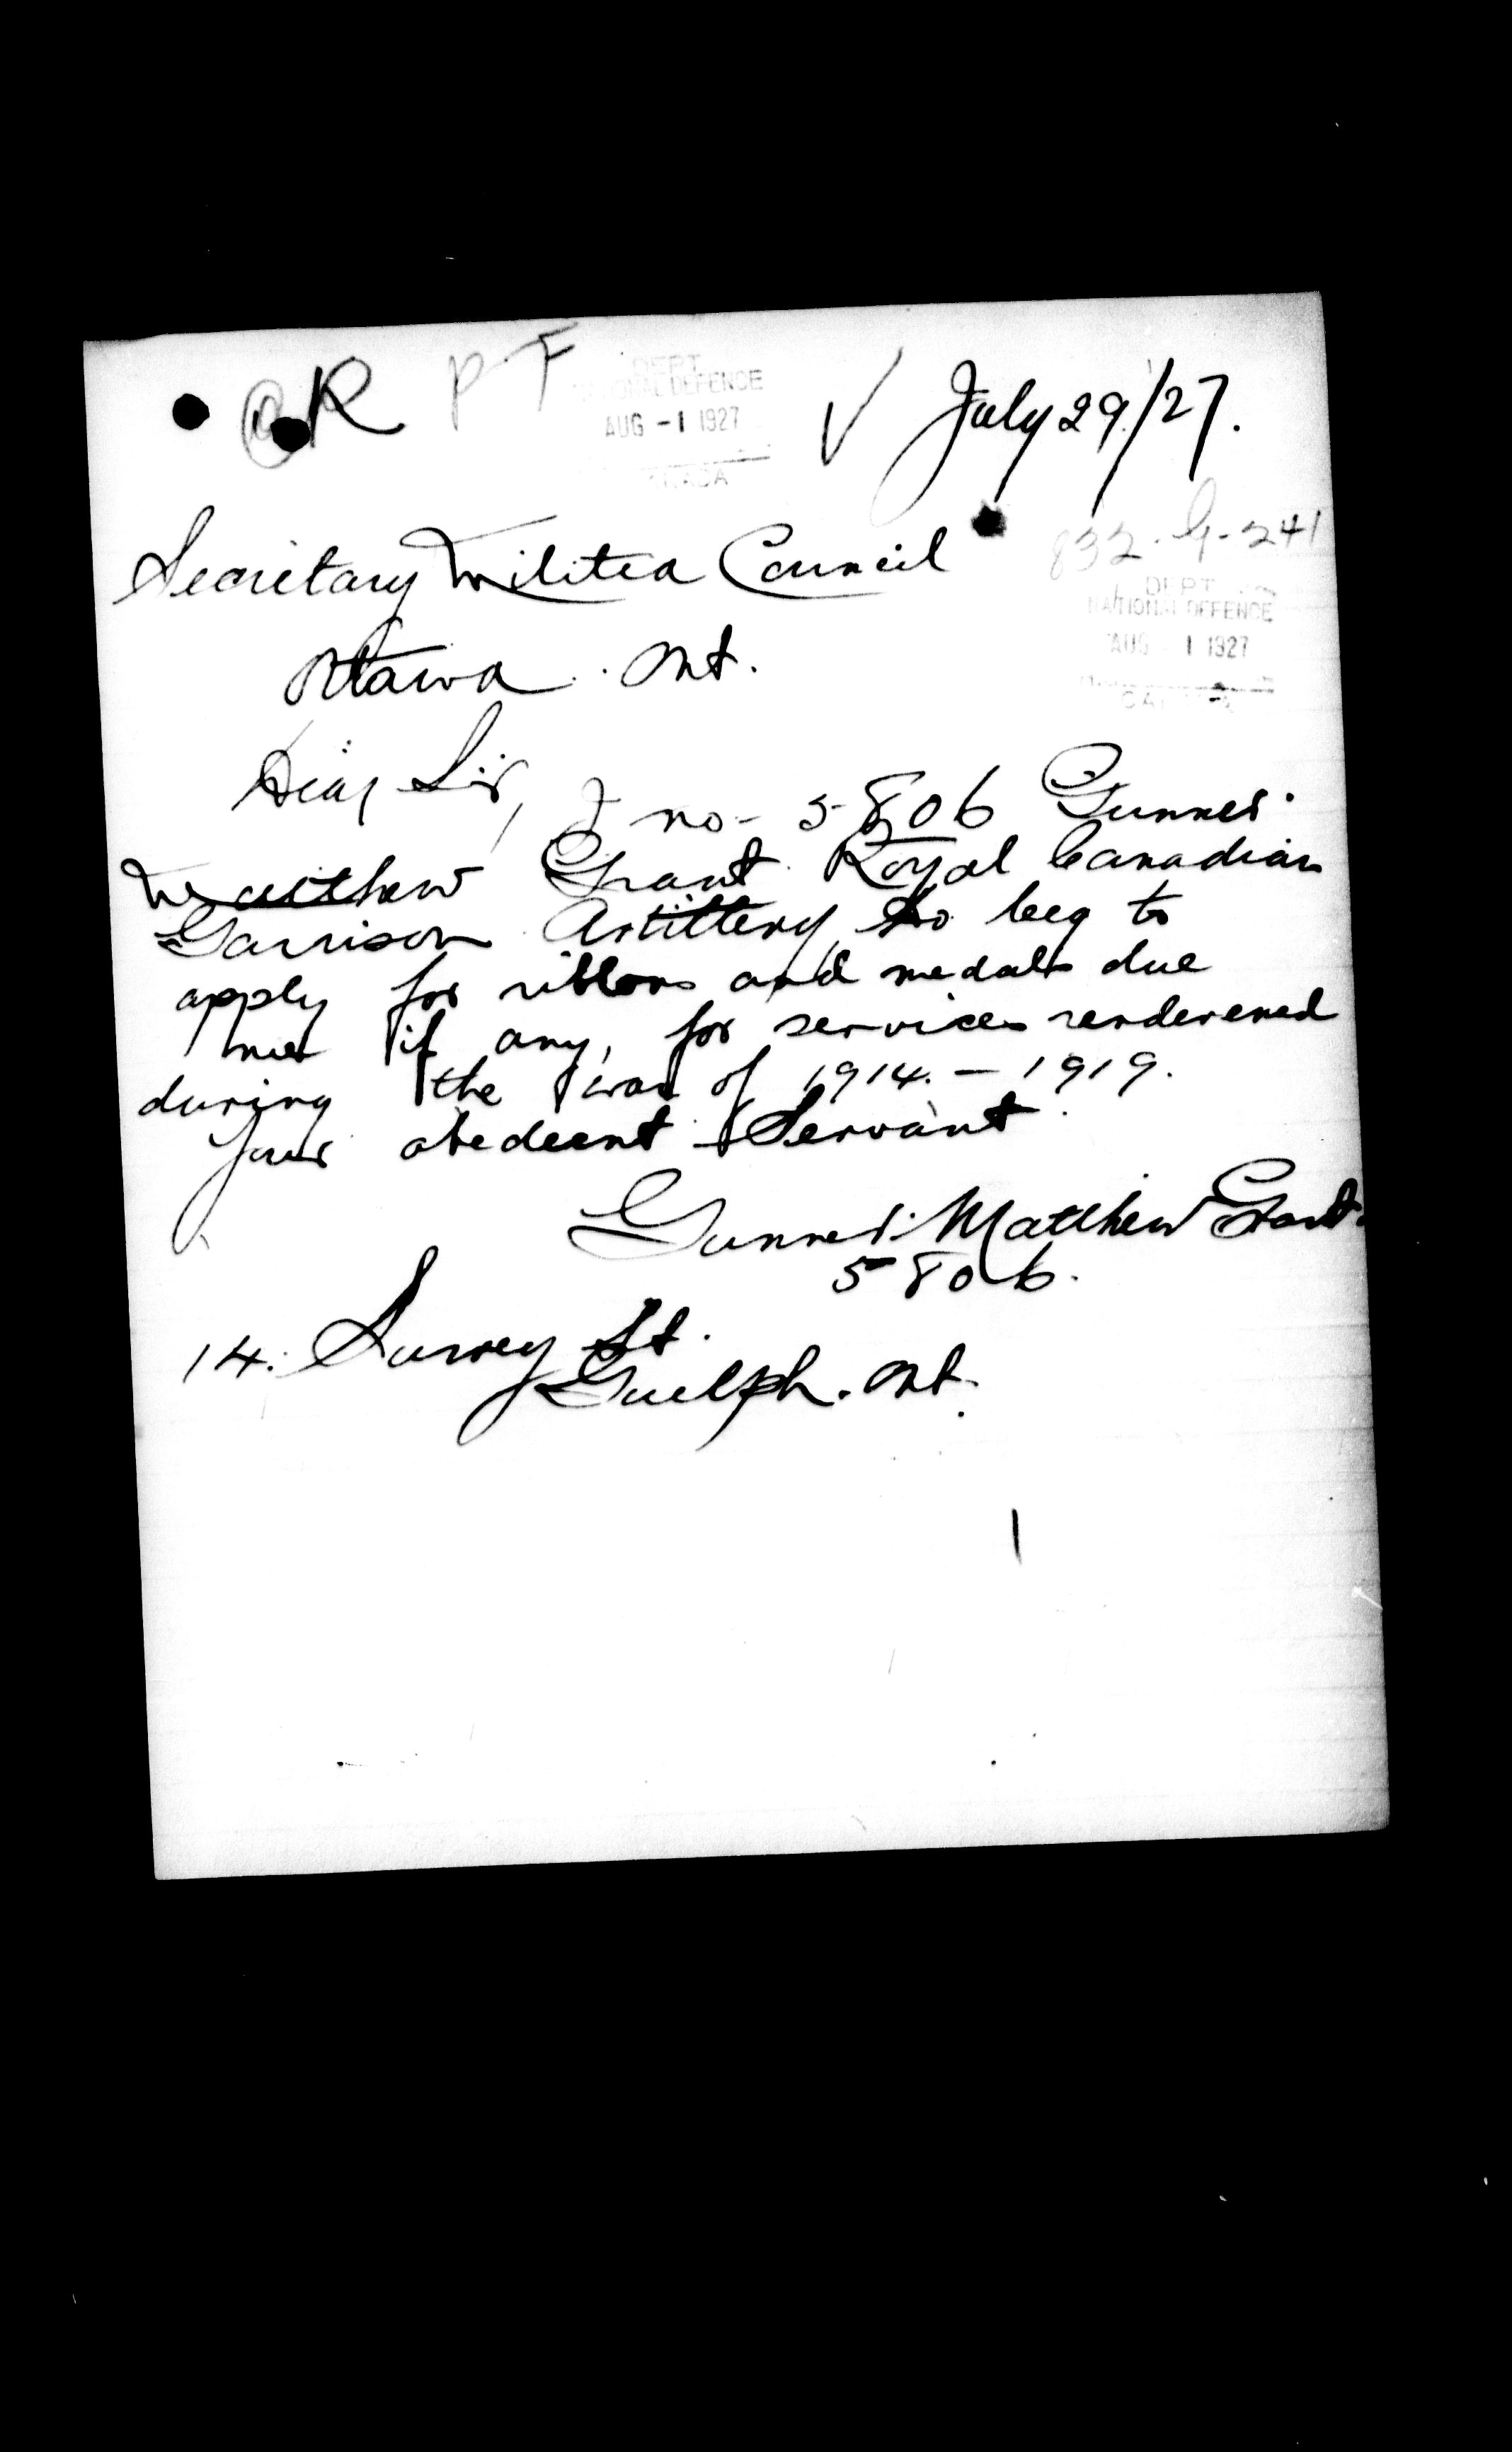 R P F
DEPT.
NATIONAL DEFENCE
AUG -1 1927
CANADA
July 29/27.
832-G-241
Secretary Militia Council
DEPT.
NATIONAL DEFENCE
AUG 1 1927
CANADA
Ottawa. Ont.
Dear Sir,
I no- 5806 Gunner
Matthew Grant Royal Canadian
Garrison Artillery, do beg to
apply for ribbons and medals due
me if any, for services renderened
during the war of 1914. - 1919.
Your obedeent Servant
Gunner. Matthew Grant.
5806.
14. Surrey St.
Guelph. Ont.